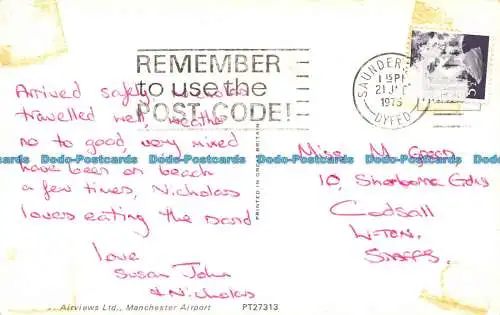 REMEMBER
to use the
POST CODE!
SAUNDERS
1 15 PM
21 JL
1975
DYFED
Arrived safely, Nicholas
travelled well, weather
no to good, very mixed
have been on beach
a few times, Nicholas
loves eating the sand
love
Susan John
& Nicholas
Miss M Green
10, Sherborne Gdns
Codsall
W-TON.
STAFFS.
PRINTED IN GREAT BRITAIN
Dodo-Postcards Dodo-Postcards Dodo-Postcards Dodo-Postcards Dodo-Postcards
Airviews Ltd., Manchester Airport PT27313